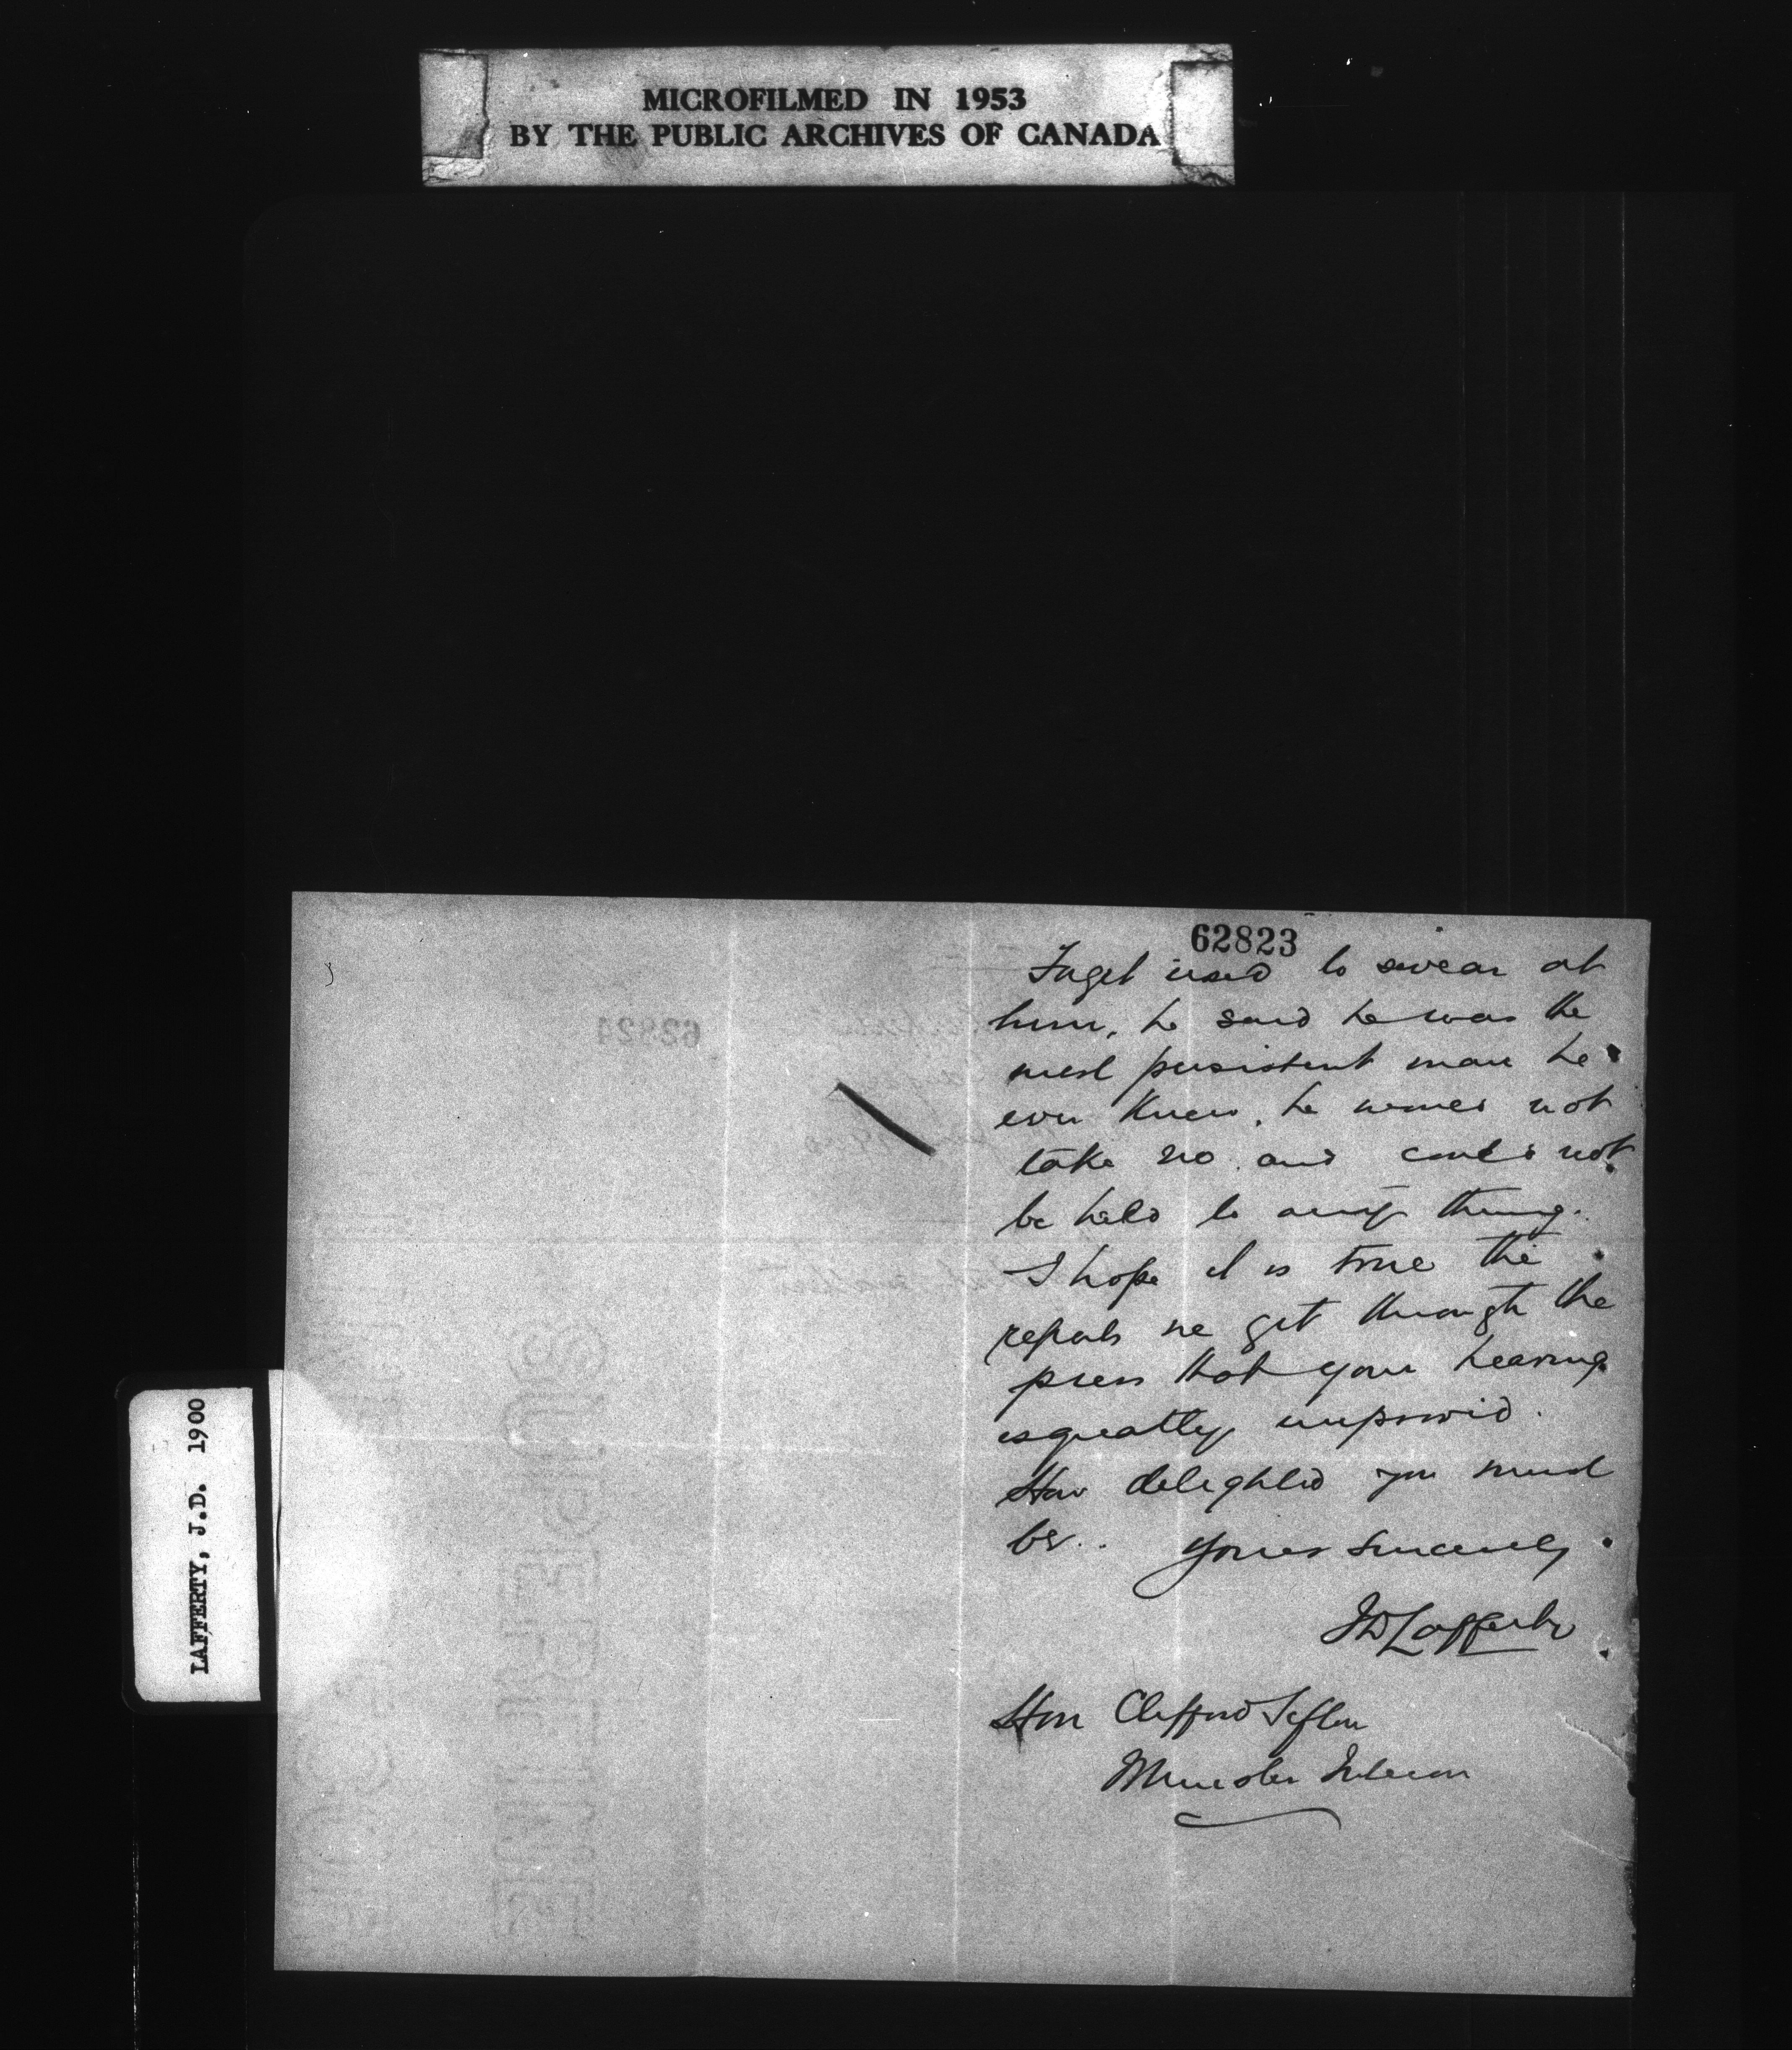 MICROFILMED IN 1953
BY THE PUBLIC ARCHIVES OF CANADA
62823
used to swear at
him, he said he was the
most persistent man he
ever knew, he would not
take no and could not
be held to any thing.
I hope it is true the
reports we get through the
press that your hearing
is greatly improvid.
How delighted you must
be.. Yours Sincerely
JD Lafferty
Hon Clifford Sifton
Minister Interior
LAFFERTY, J.D. 1900
62824